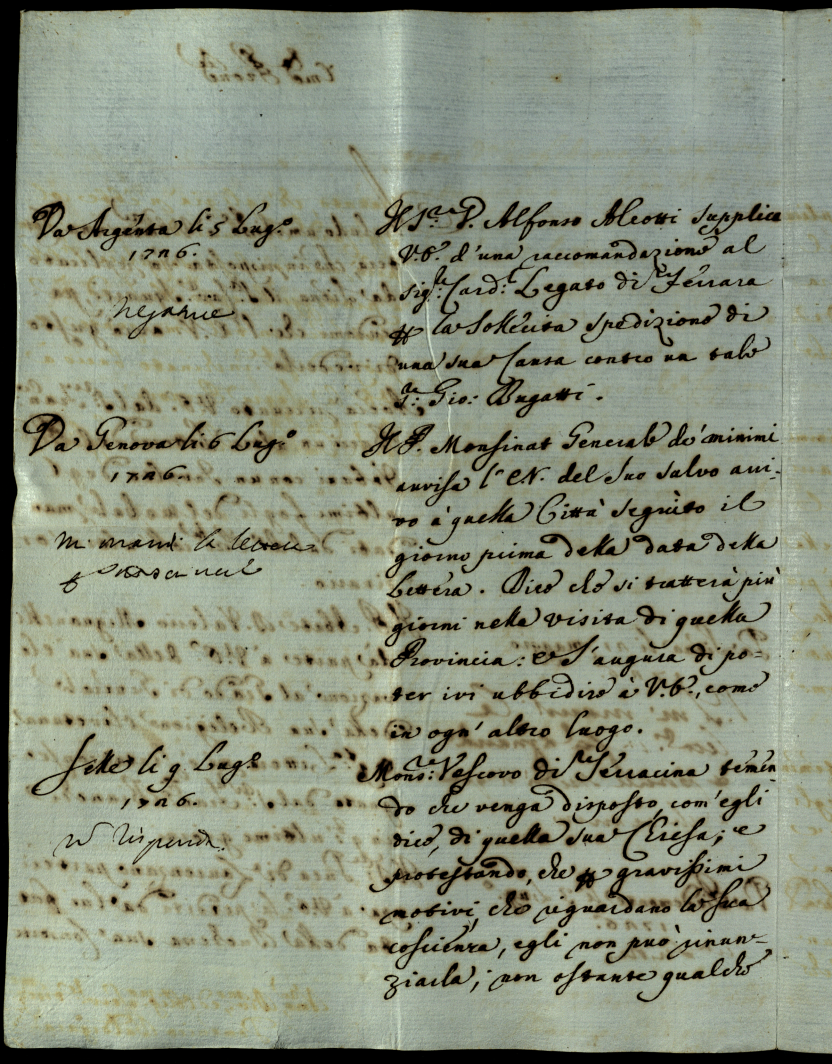 Da Argenta li 5 Lug.o
1726.
negative
Il S.re D. Alfonso Aleotti supplica
V.E. d'una raccomandazione al
Sig.r Card.l Legato di Ferrara
la sollecita spedizione di
una sua Causa contro un tale
Gio: Bugatti.
Da Genova li 6 Lug.o
1726.
mi mandi la lettera
Il P. Monsinat Generale de' minimi
avvisa l'E.V. del suo salvo arri-
vo à quella Città seguito il
giorno prima della data della
Lettera. Dice che si tratterà più
giorni nella visita di quella
Provincia: e s'augura di po-
ter ivi ubbidire à V.E., come
in ogn' altro luogo.
Sezze li 9 Lug.o
1726.
risponda.
Mons.r Vescovo di Terracina temen
do che venga disposto, com'egli
dice, di quella sua Chiesa; e
protestando, che gravissimi
motivi, che riguardano la sua
coscienza, egli non può rinun-
ziarla; non ostante qualche